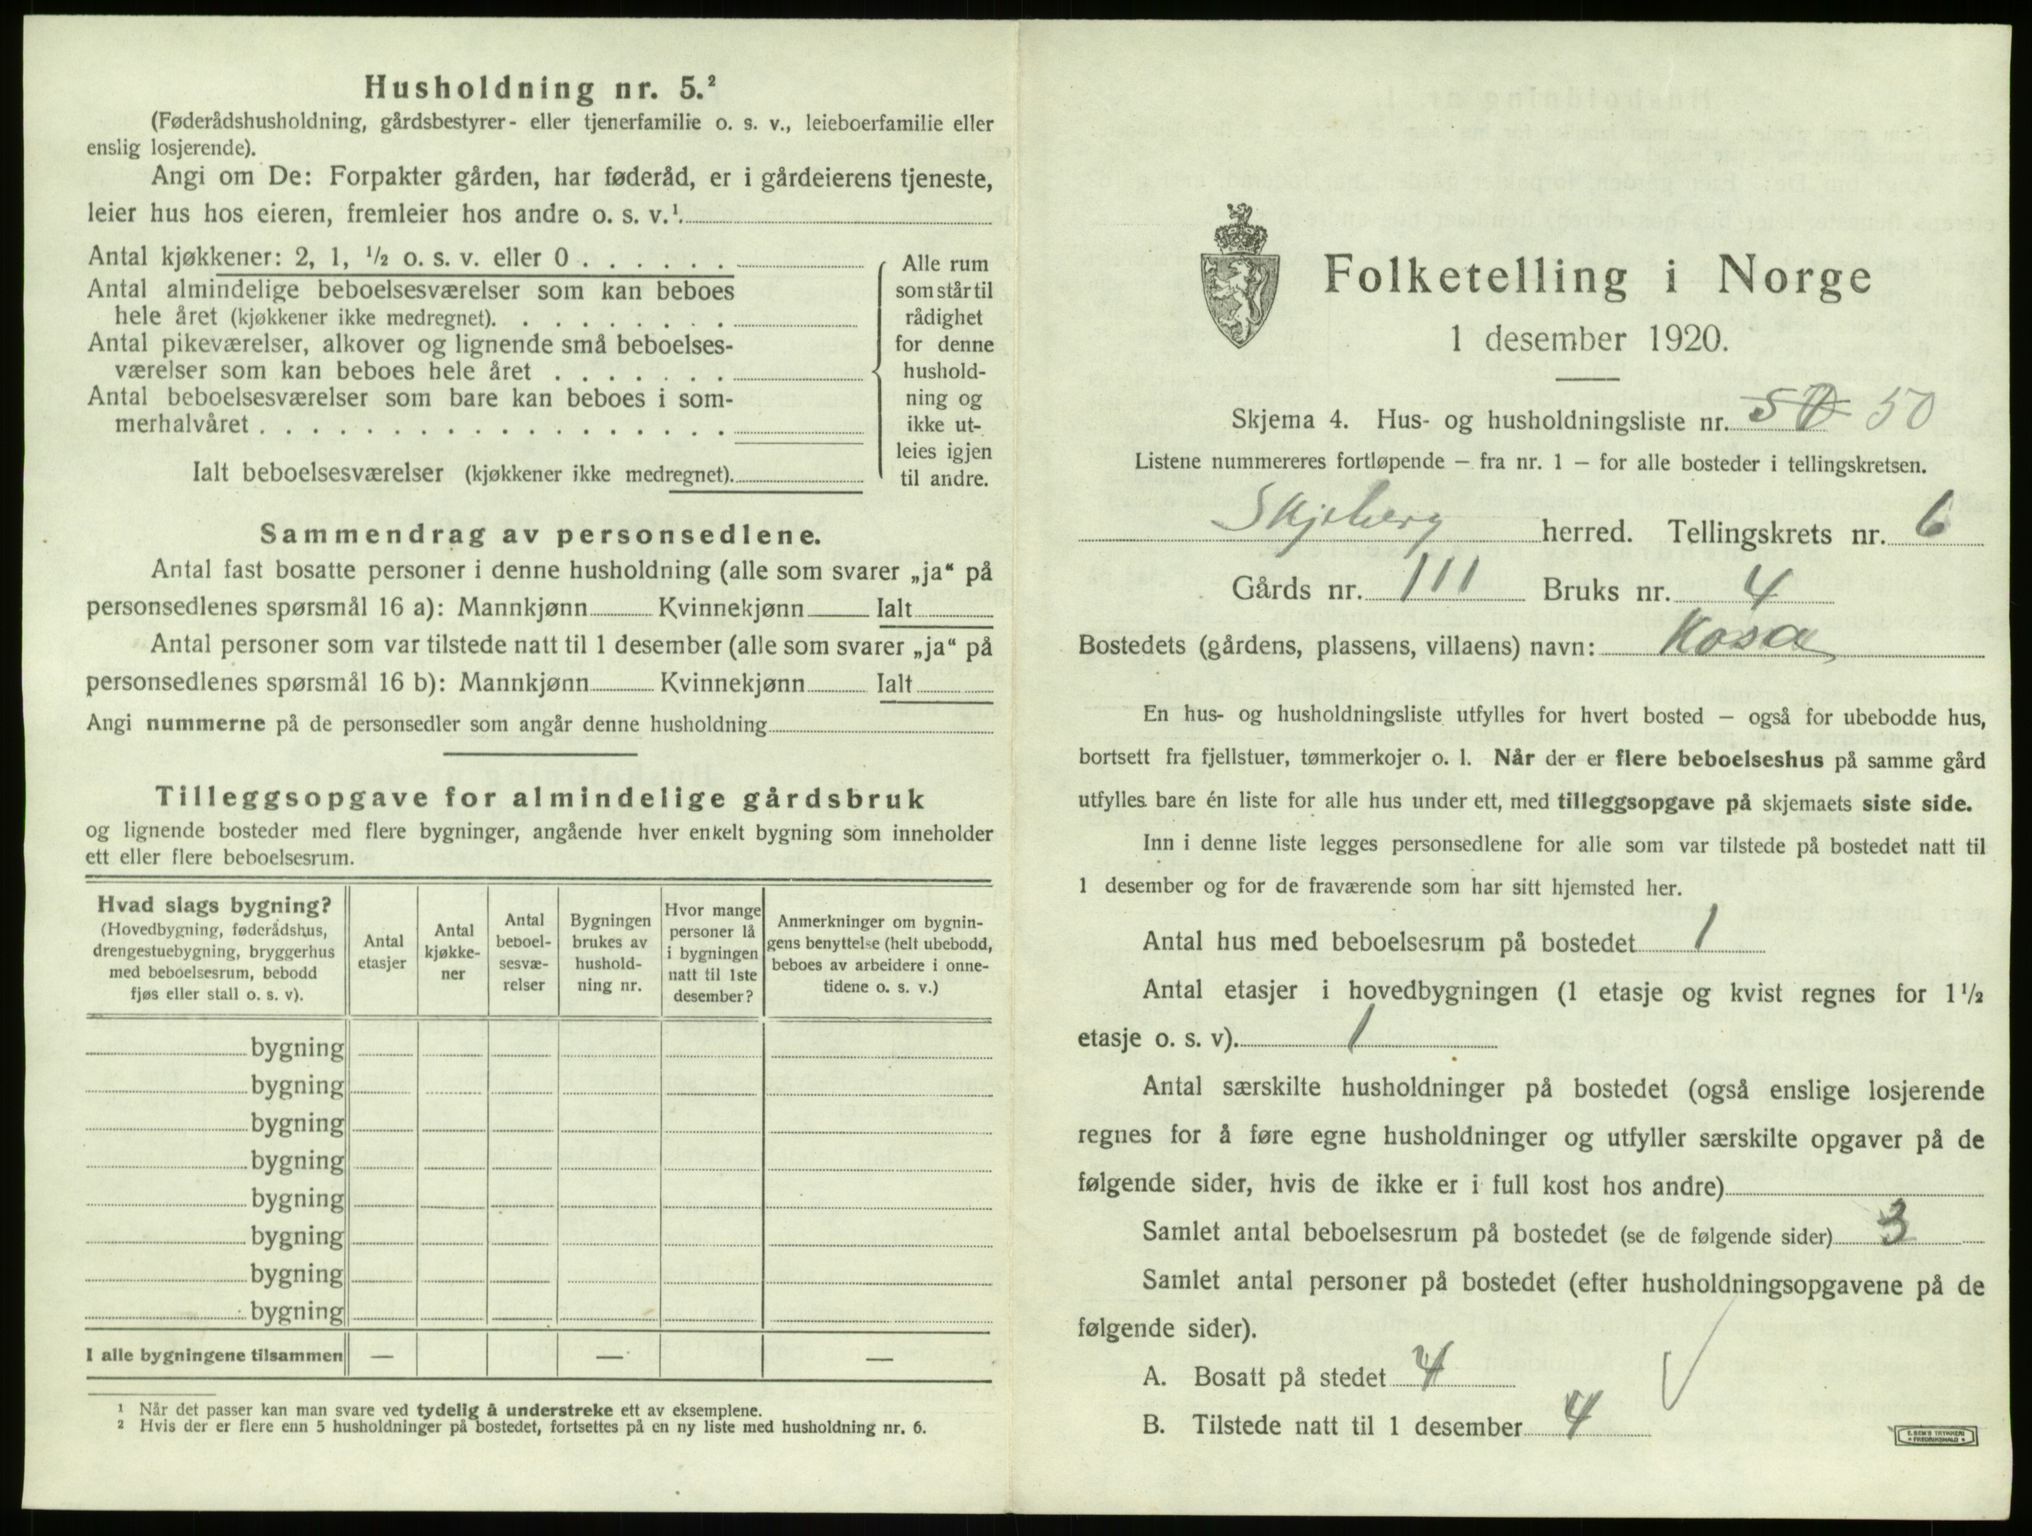 Husholdning nr. 5.²
(Føderådshusholdning, gårdsbestyrer- eller tjenerfamilie o. s. v., leieboerfamilie eller
enslig losjerende).
Angi om De: Forpakter gården, har føderåd, er i gårdeierens tjeneste,
leier hus hos eieren, fremleier hos andre o. s. v.¹.
Antal kjøkkener: 2, 1, ½ o. s. v. eller 0 . . . . . .
Antal almindelige beboelsesværelser som kan beboes
hele året (kjøkkener ikke medregnet). . . . . . . . .
Antal pikeværelser, alkover og lignende små beboelses-
værelser som kan beboes hele året . . . . . . .
Antal beboelsesværelser som bare kan beboes i som-
merhalvåret . . . . . . . . . . . . . . . . . .
Ialt beboelsesværelser (kjøkkener ikke medregnet).
Alle rum
som står til
rådighet
for denne
hushold-
ning og
ikke ut-
leies igjen
til andre.
Sammendrag av personsedlene.
Antal fast bosatte personer i denne husholdning (alle som svarer „ja“ på
personsedlenes spørsmål 16 a): Mannkjønn Kvinnekjønn Ialt
Antal personer som var tilstede natt til 1 desember (alle som svarer „ja“ på
personsedlenes spørsmål 16 b): Mannkjønn Kvinnekjønn Ialt
Angi nummerne på de personsedler som angår denne husholdning
Tilleggsopgave for almindelige gårdsbruk
og lignende bosteder med flere bygninger, angående hver enkelt bygning som inneholder
ett eller flere beboelsesrum.
Hvad slags bygning?
(Hovedbygning, føderådshus,
drengestuebygning, bryggerhus
med beboelsesrum, bebodd
fjøs eller stall o. s. v).
Antal
etasjer
Antal
kjøkke-
ner
Antal
beboel-
sesvæ-
relser
Bygningen
brukes av
hushold-
ning nr.
Hvor mange
personer lå
i bygningen
natt til 1ste
desember?
Anmerkninger om bygnin-
gens benyttelse (helt ubebodd,
beboes av arbeidere i onne-
tidene o. s. v.)
bygning
bygning
bygning
bygning
bygning
bygning
bygning
bygning
I alle bygningene tilsammen — — —
¹ Når det passer kan man svare ved tydelig å understreke ett av eksemplene.
² Hvis der er flere enn 5 husholdninger på bostedet, fortsettes på en ny liste med husholdning nr. 6.
Folketelling i Norge
1 desember 1920.
Skjema 4. Hus- og husholdningsliste nr. 50
Listene nummereres fortløpende – fra nr. 1 – for alle bosteder i tellingskretsen.
Skjeberg herred. Tellingskrets nr. 6
Gårds nr. 111 Bruks nr. 4
Bostedets (gårdens, plassens, villaens) navn: Kosa
En hus- og husholdningsliste utfylles for hvert bosted – også for ubebodde hus,
bortsett fra fjellstuer, tømmerkojer o. l. Når der er flere beboelseshus på samme gård
utfylles bare én liste for alle hus under ett, med tilleggsopgave på skjemaets siste side.
Inn i denne liste legges personsedlene for alle som var tilstede på bostedet natt til
1 desember og for de fraværende som har sitt hjemsted her.
Antal hus med beboelsesrum på bostedet 1
Antal etasjer i hovedbygningen (1 etasje og kvist regnes for 1½
etasje o. s. v). 1
Antal særskilte husholdninger på bostedet (også enslige losjerende
regnes for å føre egne husholdninger og utfyller særskilte opgaver på de
følgende sider, hvis de ikke er i full kost hos andre)
Samlet antal beboelsesrum på bostedet (se de følgende sider) 3
Samlet antal personer på bostedet (efter husholdningsopgavene på de
følgende sider).
A. Bosatt på stedet 4
B. Tilstede natt til 1 desember 4
E. SEM'S TRYKKERI
FREDRIKSHALD